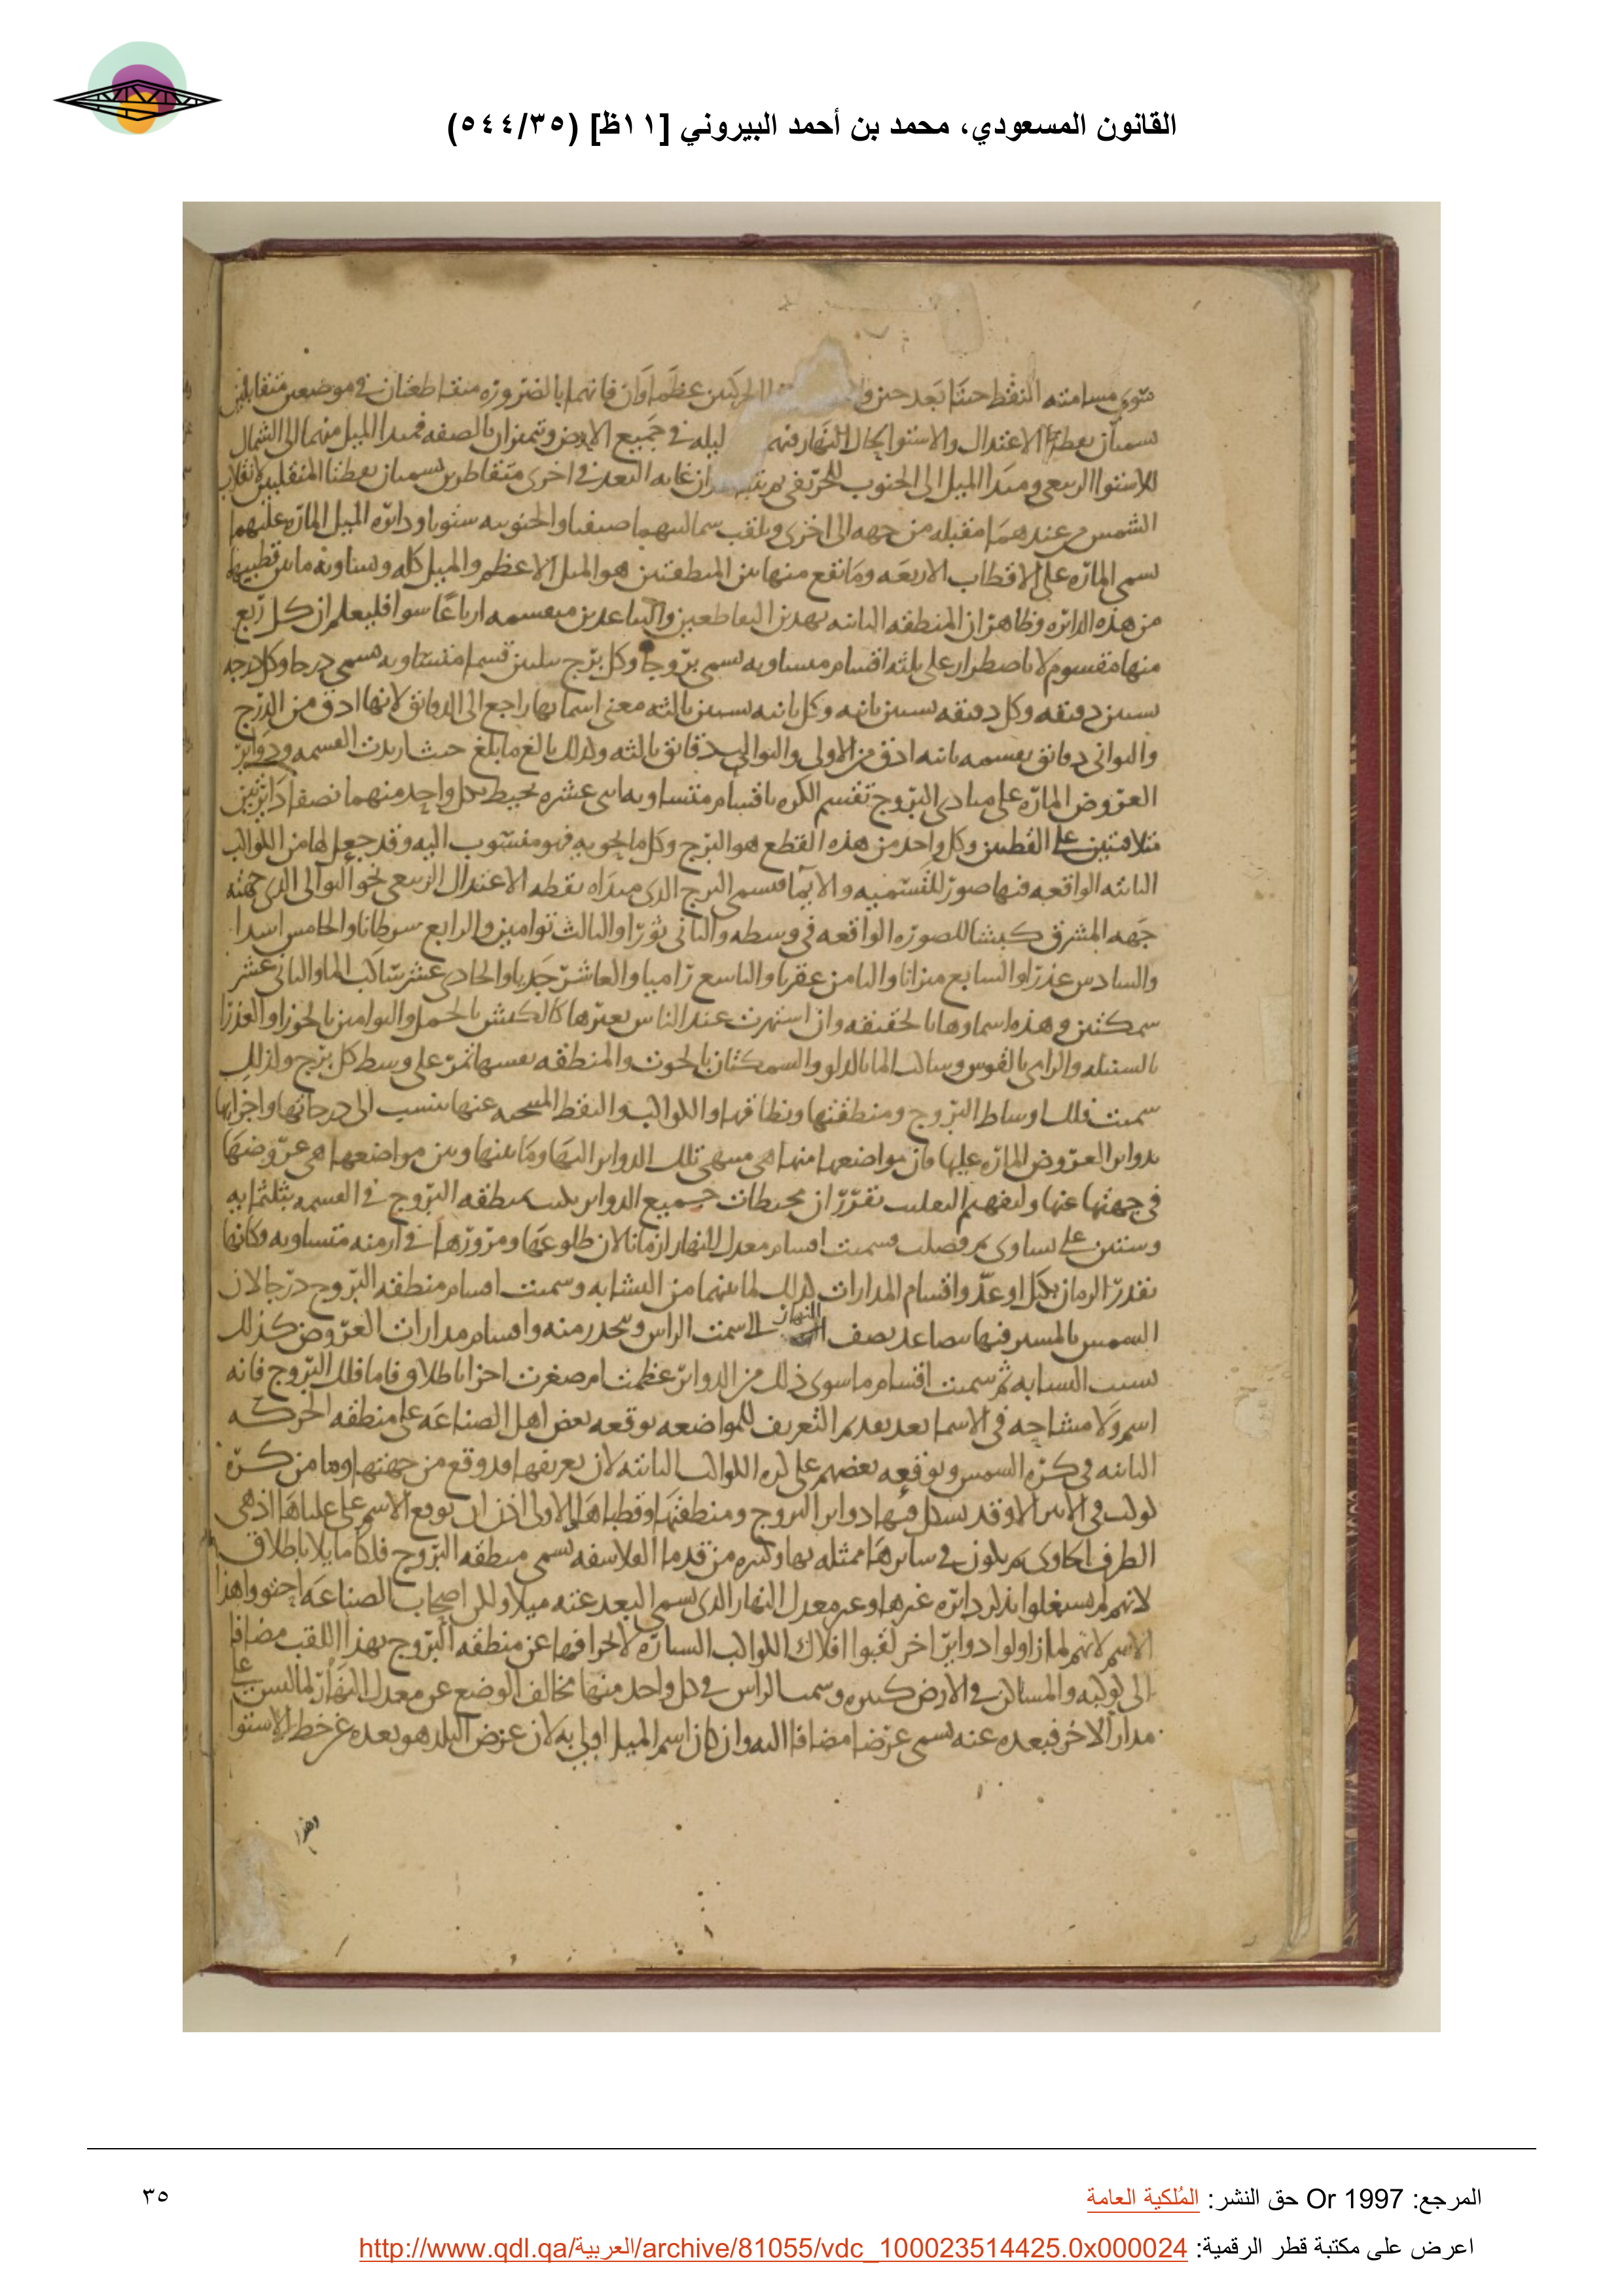 القانون المسعودي، محمد بن أحمد البيروني [١١ظ] (٥٤٤/٣٥)
مسامته النقط حينا بعد حين عظماوان فانهما بالضروره متقاطعتان في موضعين متقابلين
الاعتدال والاستوا النهار ليله في جميع الارض وتتميزان بالصفه فمبدا الميل منهما الى الشمال
للاستوا الربيعي ومبدا الميل الى الجنوب للخريفي غايه البعد في اخرى متقاطرين نقطتا المنقلبين لانقلاب
الشمس عندهما مقبله من جهه الى اخرى وتلقب صيفيا والجنوبيه شتويا ودائره الميل الماره عليهما
تسمى الماره على الاقطاب الاربعه وما يقع منها بين المنطقتين هو الميل الاعظم والميل كله وتساويه ما بين قطبيهما
من هذه الدائره وظاهر ان المنطقه الثانيه بهذين التقاطعين والتباعدين منقسمه ارباعا سوا فليعلم ان كل ربع
منها مقسوم لا باضطرار على ثلثه اقسام متساويه تسمى بروجا وكل برج بثلثين قسما متساويه تسمى درجا وكل درجه
بستين دقيقه وكل دقيقه بستين ثانيه وكل ثانيه بستين ثالثه معنى اسمائها راجع الى الدقائق لانها ادق من الدرج
والثواني دقائق بقسمه ثانيه ادق من الاولى والثوالث دقائق ثالثه وكذلك بالغ ما بلغ حيث اريدت القسمه ودوائر
العروض الماره على مبادى البروج تقسم الكره باقسام متساويه اثنى عشره يحيط بكل واحد منهما نصفا دائرتين
متلاقيتين على القطبين وكل واحد من هذه القطع هو البرج وكل ما يحويه فهو منسوب اليه وقد جعل لها من الكواكب
الثابته الواقعه فيها صور للتسميه والايما فسمى البرج الذى مبداه نقطه الاعتدال الربيعي نحو التوالى الذى جهته
جهه المشرق كبشا للصوره الواقعه في وسطه والثاني ثورا والثالث توامين والرابع سرطانا والخامس اسدا
والسادس عذرا والسابع ميزانا والثامن عقربا والتاسع راميا والعاشر جديا والحادى عشر ساكب الما والثاني عشر
سمكتين وهذه اسماوها بالحقيقه وان اشتهرت عند الناس بغيرها كالكبش بالحمل والتوامين بالجوزا والعذرا
بالسنبله والرامي بالقوس وساكب الما بالدلو والسمكتان بالحوت والمنطقه نفسها تمر على وسط كل برج ولذلك
سميت فلك اوساط البروج ومنطقتها ونطاقها والكواكب والنقط المتنحيه عنها تنسب الى درجاتها واجزائها
بدوائر العروض الماره عليها فان مواضعها منها هي منتهى تلك الدوائر اليها وما بينها وبين مواضعها هي عروضها
في جهتها عنها وليفهم التقليب تقرر ان محيطات جميع الدوائر منطقه البروج في القسمه بثلثمايه
وستين على تساوى ثم فصلت فسميت اقسام معدل النهار ازمانا لان طلوعها ومرورها في ازمنه متساويه وكانها
تقدر الزمان بكيل او عد واقسام المدارات كذلك لما بينهما من التشابه وسميت اقسام منطقه البروج درجا لان
الشمس بالمسير فيها تصاعد نصف النهار الى سمت الراس وتنحدر منه واقسام مدارات العروض كذلك
بسبب التشابه ثم سميت اقسام ما سوى ذلك من الدوائر عظمت ام صغرت اجزا باطلاق فاما فلك البروج فانه
اسم ولا مشاحه في الاسما بعد تقديم التعريف للمواضعه يوقعه بعض اهل الصناعه على منطقه الحركه
الثانيه في كره الشمس ويوقعه بعضهم على كره الكواكب الثابته لان تعريفها قد وقع من جهتها وما من كره
كوكب في الاثير الا وقد تشكل فيها دوائر البروج ومنطقتها وقطباها الاولى اذن ان يوقع الاسم على علياها اذ هي
الطرف الحاوى ثم يكون في سائرها ممثله بها وكثير من قدما الفلاسفه تسمى منطقه البروج فلكا مايلا باطلاق
لانهم لم يشتغلوا بذكر دائره غيرها وغير معدل النهار الذى يسمى البعد عنه ميلا ولكن اصحاب الصناعه اجتنبوا هذا
الاسم لانهم لما زاولوا دوائر اخر لقبوا افلاك الكواكب السياره لانحرافها عن منطقه البروج بهذا اللقب مضافا
الى كوكبه والمساكن في الارض كثيره وسمت الراس في كل واحد منها مخالف الوضع عن معدل النهار لما ليس على
مدار الاخر فبعده عنه يسمى عرضا مضافا اليه وان كان اسم الميل اولى به لان عرض البلد هو بعده عن خط الاستوا
وهذا
المرجع: Or 1997 حق النشر: المُلكية العامة
٣٥
اعرض على مكتبة قطر الرقمية: http://www.qdl.qa/العربية/archive/81055/vdc_100023514425.0x000024